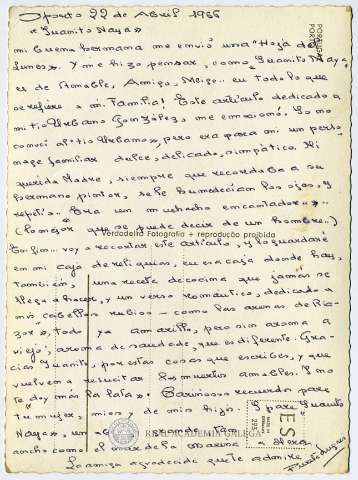 Oporto 22 de Abril 1966
"Juanito Naya"
mi buena hermana me envió una "Hoja del
Lunes". Y me hizo pensar, como "Juanito Naya"
es de Amable, Amigo, Meigo.. en todo lo que
se refiere a mi Familia! Este artículo dedicado a
mi tio Urbano González, me emocionó. Yo no
conocí al "tio Urbano", pero era para mi un perso
naje familiar dulce, delicado, simpático. Mi
querida Madre, siempre que recordaba a su
hermano pintor, se le humedecían los ojos, y
repetía.. Era un muchacho encantador "..
(lo mejor que se puede decir de un hombre..)
Verdadeira Fotografia + reprodução proibida
En fin.. voy a recortar este artículo, y lo guardaré
en mi caja de reliquias, en esa caja donde hay,
también, una receta de cocina que jamás se
llega a hacer, y un verso romántico, dedicado a
mis cabellos rubios — como las arenas de Ria
zor", todo ya amarillo, pero sin aroma a
viejo; aroma de saudade, que es diferente. Gra
cias Juanito, por estas cosas que escribes, y que
vuelven a resucitar los muertos amables. Y no
te doy más la lata". Cariñosos recuerdos para
tu mujer, mios y de mis hijos. Y para "Juanito
Naya", un grande tan
ancho como el mar de la Marina
La amiga agradecida que te admira
REAL ACADEMIA GALEGA
PORTUGAL
PORTO
ES